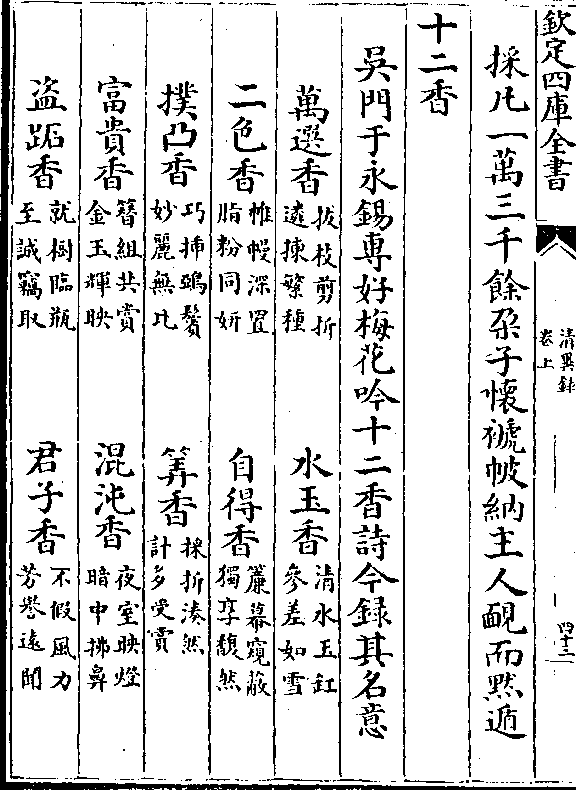 欽定四庫全書
清異錄
卷上
四十三
採凡一萬三千餘朶子懷褫帔納主人靦而黙遁
十二香
吳門于永錫專好梅花吟十二香詩今錄其名意
萬選香
拔枝剪折
遴揀繁種
水玉香
清水玉缸
參差如雪
二色香
帷幔深置
脂粉同妍
自得香
簾幕窺蔽
獨享馥然
撲凸香
巧揷鴉鬢
妙麗無比
筭香
採折湊然
計多受賞
富貴香
簪組共賞
金玉輝映
混沌香
夜室映燈
暗中拂鼻
盜跖香
就樹臨瓶
至誠竊取
君子香
不假風力
芳譽遠聞